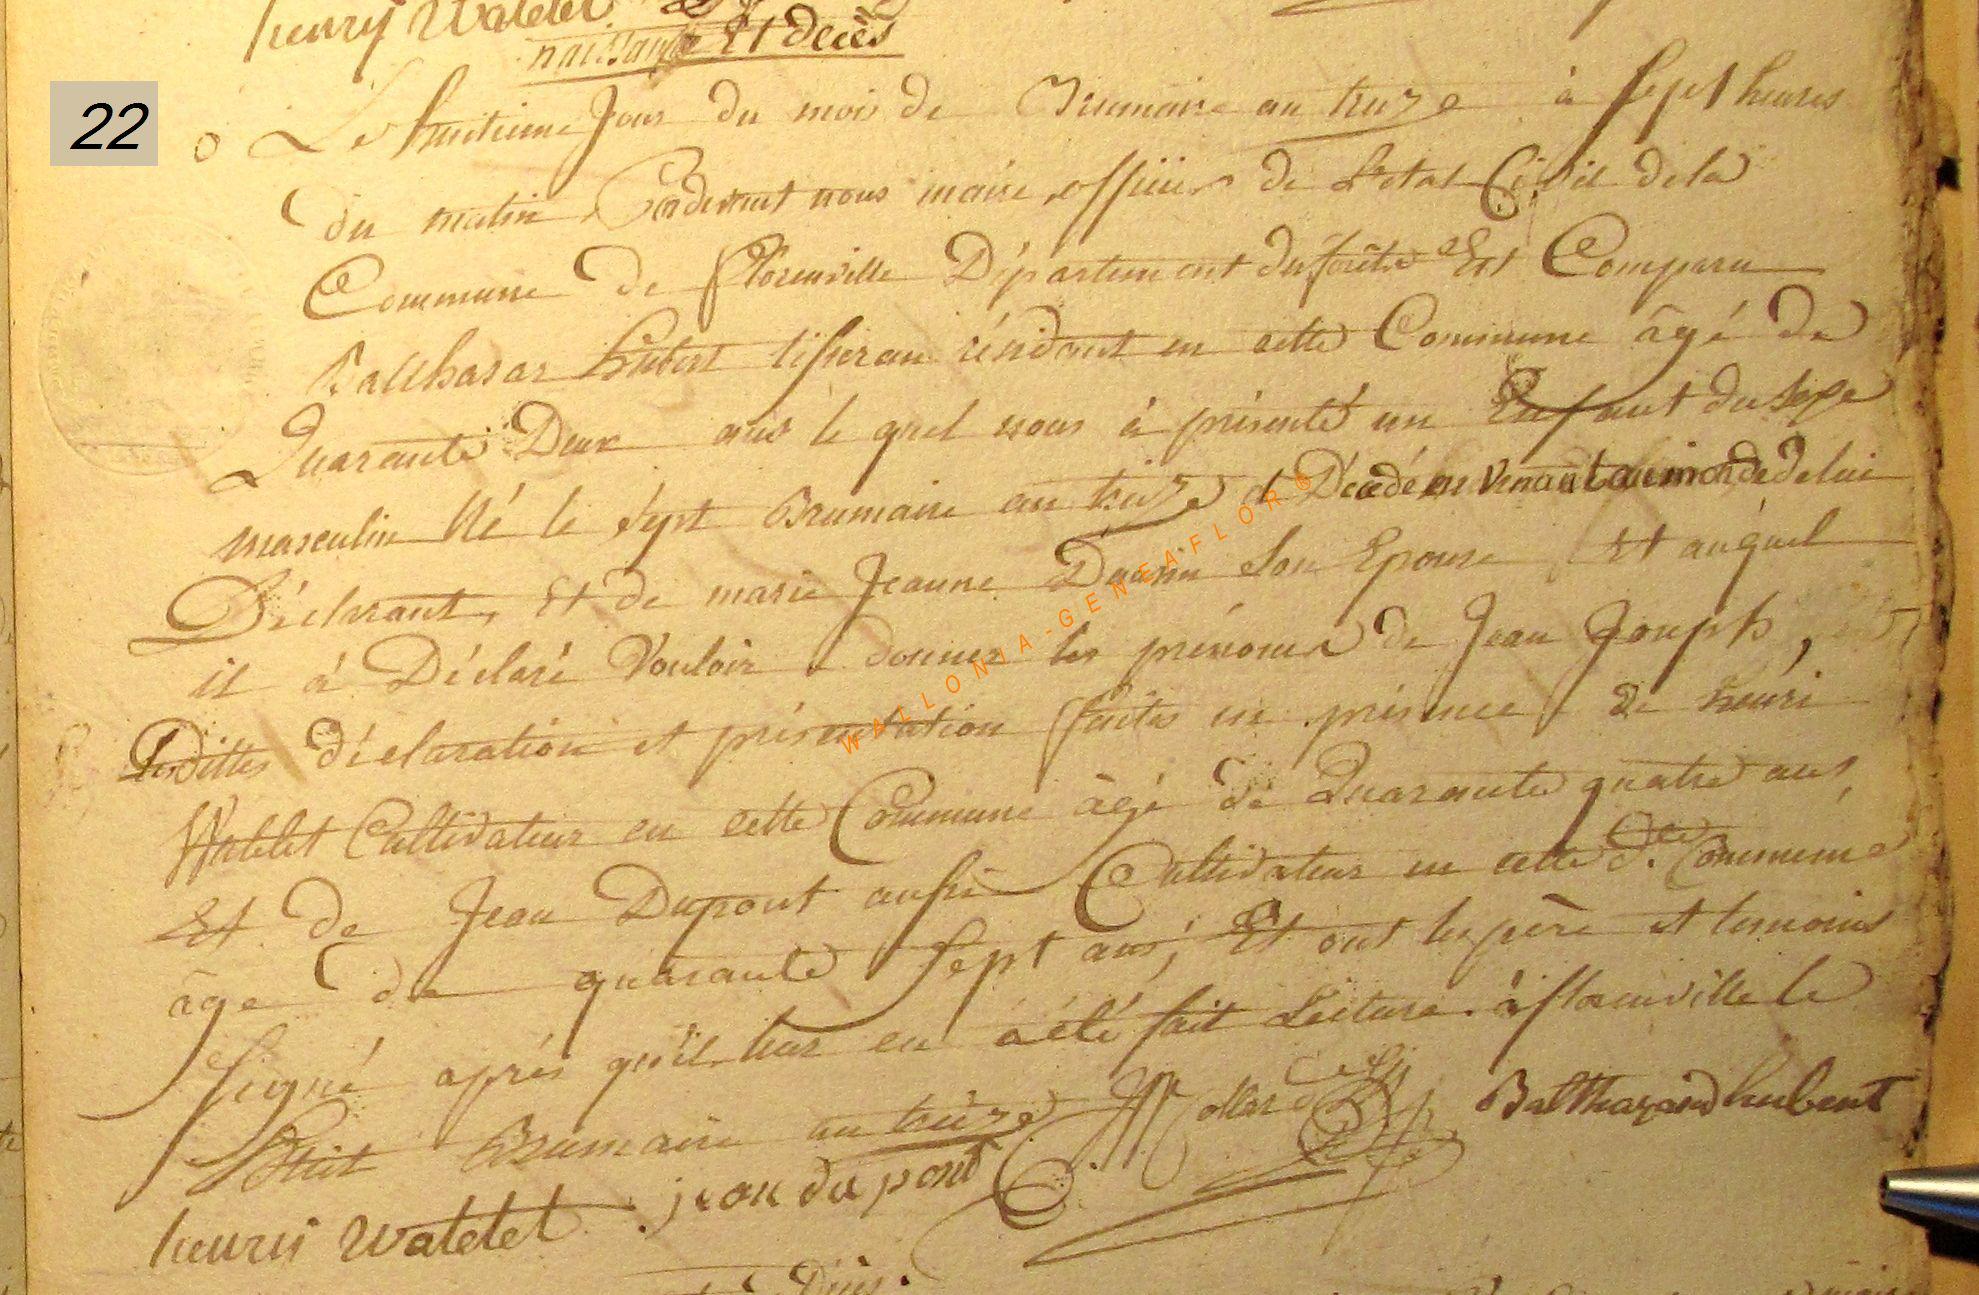 henry Watelet
naissance Et decès
22
Le huitieme Jour du mois de Brumaire an treize à sept heures
du matin, Pardevant nous maire, officier de L'etat Civil dela
Commune de Florenville Département des forêts Est Comparu
Balthasar Hubert tisseran résidant en cette Commune âgé de
Quarante Deux ans le quel nous à présenté un Enfant du Sexe
masculin Né le sept Brumaire an treize et Décédé en venant au monde de lui
Déclarant, Et de marie Jeanne son Epouse, Et auquel
il à Déclaré Vouloir donner les prénoms de Jean Joseph,
Lesdittes déclaration et présentation faites en présence de henri
Watelet Cultivateur en cette Commune âgé de Quarante quatre ans,
Et de Jean Dupont aussi Cultivateur en cette de. Commune
âge de quarante sept ans, Et ont les père et temoins
signé après qu'il leur en a été fait Lecture. à florenville le
Huit Brumaire an treize Balthazard hubert
henry Watelet. jean du pont
WALLONIA-GENEAFLOR©